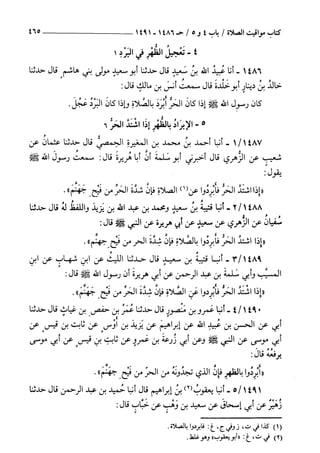 كتاب مواقيت الصلاة / باب ٤ و ٥ / حـ ١٤٨٦ - ١٤٩١ ــــــــــ ٤٦٥
٤ - تَعْجِيلُ الظُّهْرِ في البَرْدِ ١
١٤٨٦ - أنا عُبيدُ الله بنُ سَعيدٍ قال حدثنا أبو سعيدٍ مولى بني هاشمٍ قال حدثنا
خالدُ بنُ دينارٍ أبو خَلْدةَ قال سمعتُ أنسَ بن مالكٍ قال:
كان رسول الله ﷺ إذا كانَ الحَرُّ أبْرَدَ بالصَّلاةِ وإذا كانَ البَرْدُ عَجَّلَ.
٥ - الإبرادُ بالظُّهْرِ إذا اشْتَدَّ الحَرُّ ٦
١/١٤٨٧ - أنبا أحمد بنُ محمد بن المغيرةِ الحِمصيُّ قال حدثنا عثمانُ عن
شعيبٍ عن الزُّهري قال أخبرني أبو سَلمةَ أنَّ أبا هُريرةَ قال: سمعتُ رسولَ الله ﷺ
يقول:
«إذا اشتَدَّ الحَرُّ فأبْرِدُوا عن(١) الصلاةِ فإنَّ شِدَّةَ الحَرِّ من فَيْحِ جَهَنَّمَ».
٢/١٤٨٨ - أنبا قتيبةُ بنُ سعيدٍ ومحمد بن عبد الله بن يَزيدَ واللفظُ لهُ قال حدثنا
سُفيانُ عن الزُّهري عن سعيدٍ عن أبي هريرة عن النبي ﷺ قال:
«إذا اشتد الحَرُّ فأبردُوا بالصَّلاةِ فإنَّ شدَّةَ الحر من فَيْحِ جهنَّمَ».
٣/١٤٨٩ - أنبا قتيبةُ بن سعيدٍ قال حدثنا الليثُ عن ابنِ شهابٍ عن ابنِ
المسيَّبِ وأبي سَلَمةَ بن عبد الرحمن عن أبي هريرةَ أن رسول الله ﷺ قال:
«إذا اشتدَّ الحَرُّ فأبْرِدُوا عَنِ الصَّلاةِ فإنَّ شِدَّةَ الحَرِّ من فَيْحِ جَهَنَّمَ».
٤/١٤٩٠ - أنبا عَمرو بن مَنْصورٍ قال حدثنا عُمَرُ بن حفصِ بن غِياثٍ قال حدثنا
أبي عن الحسنِ بن عُبيدِ الله عن إبراهيمَ عن يَزيدَ بن أوْسٍ عن ثابت بن قيسٍ عن
أبي موسى عن النبي ﷺ وعن أبي زُرعةَ بن عَمرو عن ثابتِ بن قيسٍ عن أبي موسى
يرفعُهُ قال:
«أبْرِدُوا بالظهرِ فإنَّ الذي تجدُونَهُ من الحرِّ من فَيْحِ جَهَنَّم».
٥/١٤٩١ - أنبا يعقوبُ(٢) بنُ إبراهيم قال أنبا حُميد بن عبد الرحمن قال حدثنا
زُهَيْرٌ عن أبي إسحاقَ عن سعيد بن وَهْبٍ عن خَبَّابٍ قال:
(١) كذا في ت، ز وفي ح، غ: فابردوا بالصلاة.
(٢) في ت، غ: «أبو يعقوب» وهو غلط.